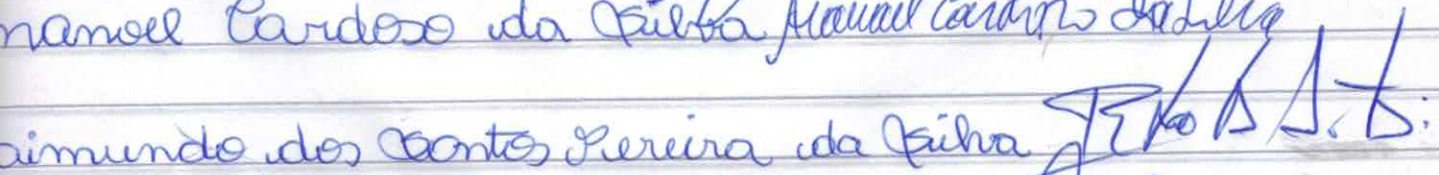 manoel Cardoso da Silva Manoel Cardoso da Silva
aimundo dos Santos Pereira da Silva